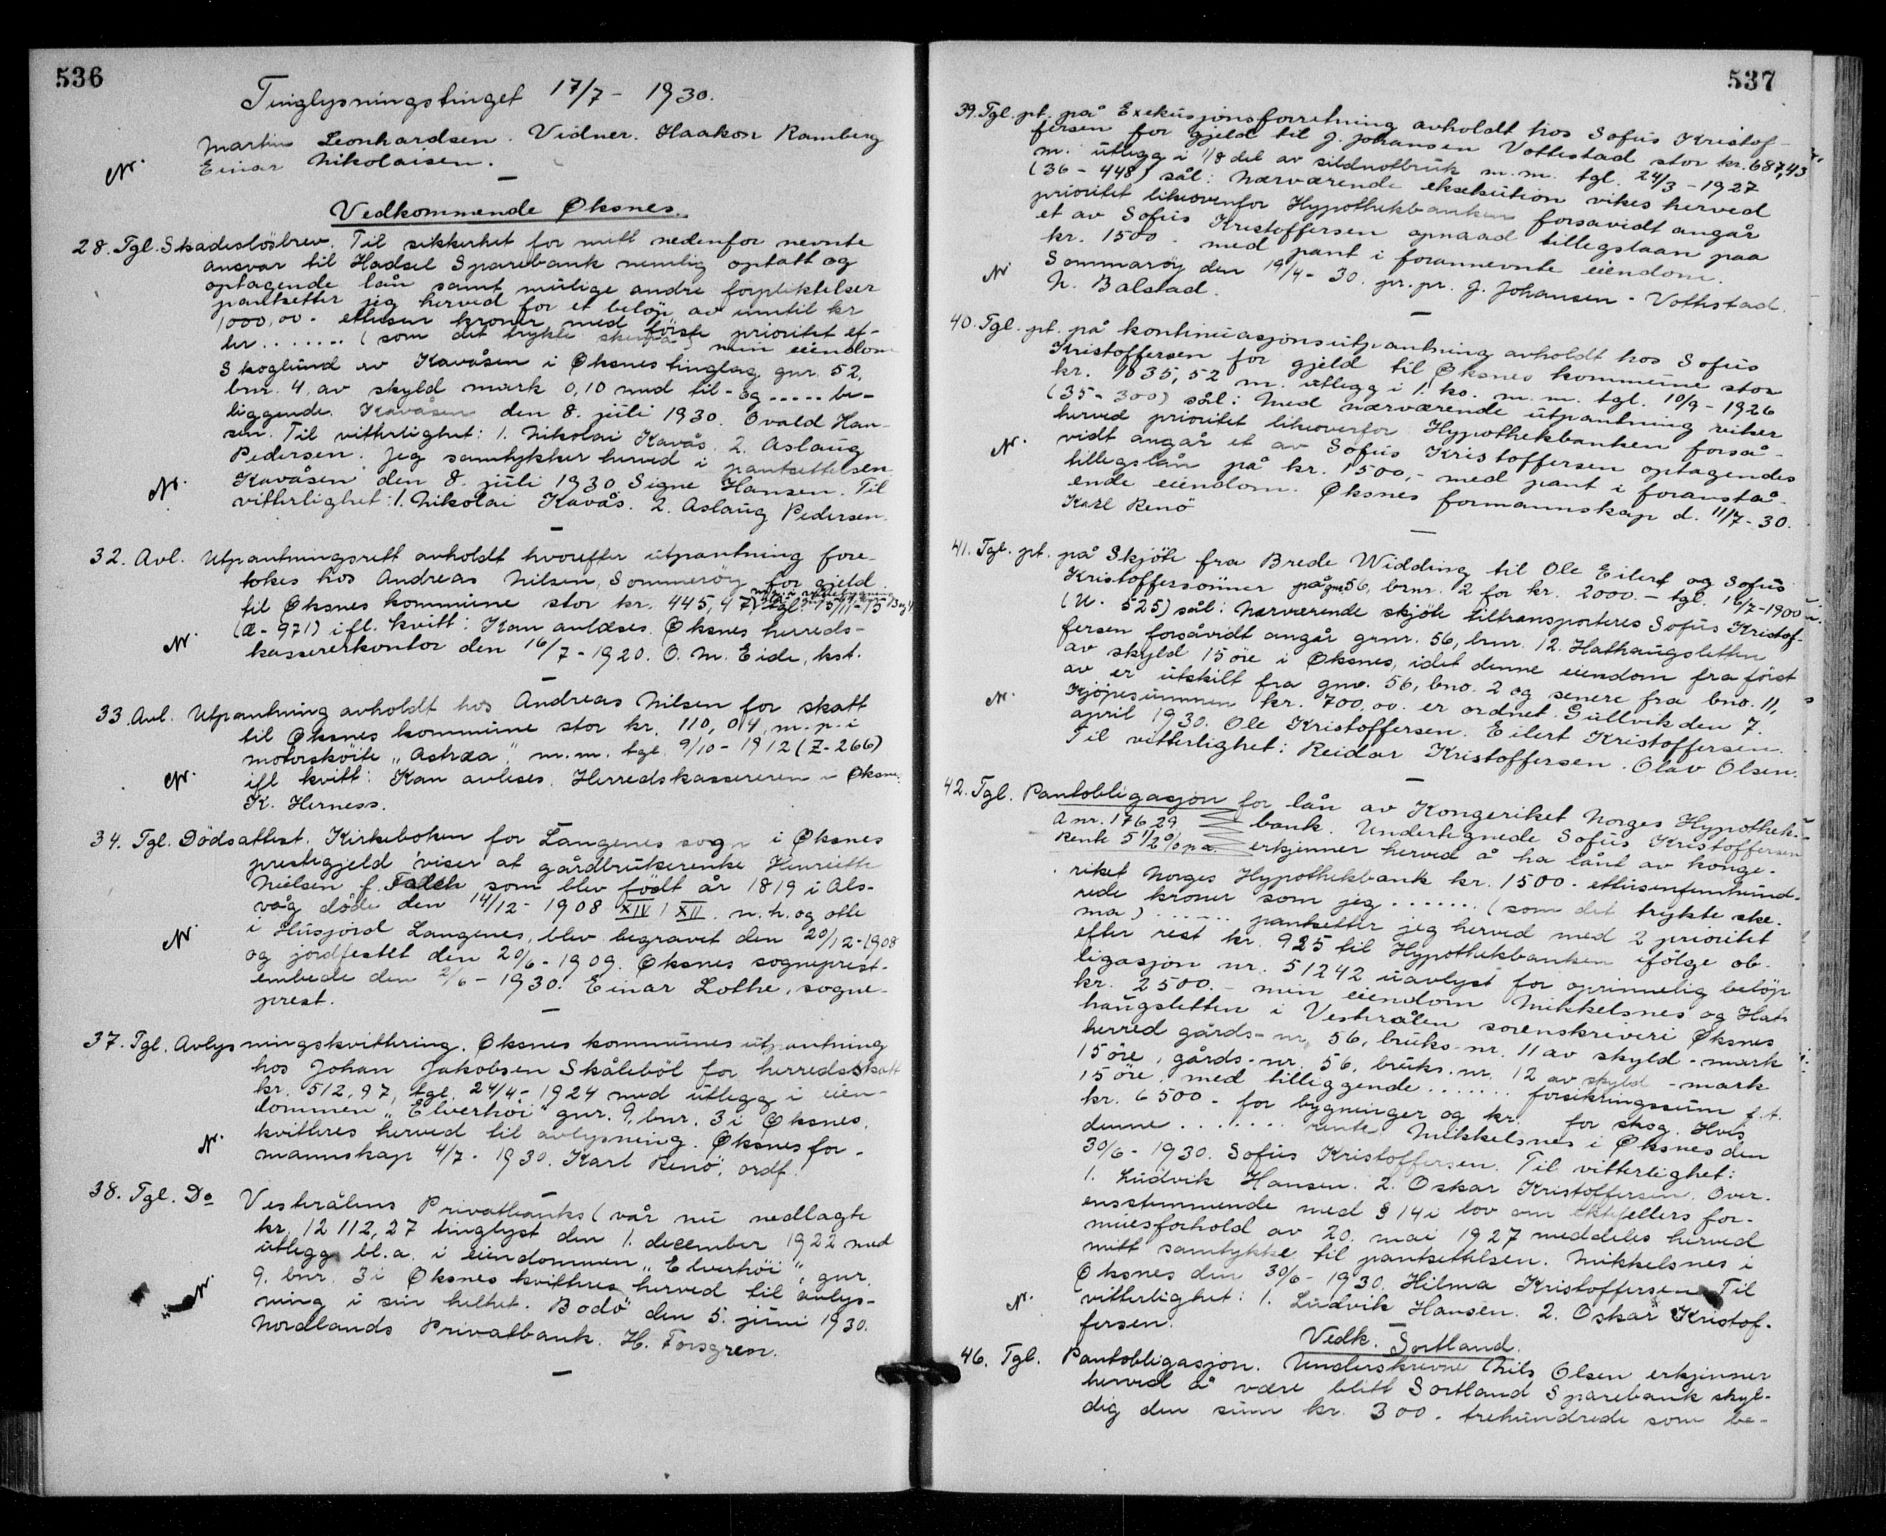 536
Tinglysningstinget 17/7 - 1930.
Martin Leonhardsen. Vidner. Haakon Ramberg
Einar Nikolaisen.
Vedkommende Øksnes.
28. Tgl. Skadeslösbrev. Til sikkerhet for mitt nedenfor nevnte
ansvar til Hadsel Sparebank nemlig optatt og
optagende lån samt mulige andre forpliktelser
pantsetter jeg herved for et beløp av inntil kr
1000,00 - ettusen kroner med første prioritet et-
ter ....... (som det trykte skema) min eiendom
Skoglund av Kavåsen i Øksnes tinglag gnr. 52,
bnr. 4, av skyld mark 0,10 med til - og ..... be-
liggende. Kavåsen den 8. juli 1930. Ovald Han-
sen. Til vitterlighet: 1. Nikolai Kavås. 2. Aslaug
Pedersen. Jeg samtykker herved i pantsettelsen
Kavåsen den 8. juli 1930 Signe Hansen. Til
vitterlighet: 1. Nikolai Kavås. 2. Aslaug Pedersen.
32. Avl. Utpantningsrett avholdt hvorefter utpantning fore-
tokes hos Andreas Nilsen, Sommeröy for gjeld
til Øksnes kommune stor kr. 445,47, tgl. 15/11-15
(Æ - 971) ifl. kvitt: Kan avlæses. Øksnes herreds-
kassererkontor den 16/7 - 1920. O. M. Eide, kst.
33. Avl. Utpantning avholdt hos Andreas Nilsen for skatt
til Øksnes kommune stor kr. 110,04 m. p. i
motorskøite "Astræa" m.m. tgl. 9/10 - 1912 (Z - 266)
ifl kvitt: Kan avleses. Herredskassereren i Øksnes
K. Herness.
34. Tgl. Dödsattest. Kirkeboken for Langenes sogn i Øksnes
prestegjeld viser at gårdbrukerenke Henriette
Nielsen f. Falch som blev født år 1819 i Als-
våg døde den 14/12 - 1908 XIV / XII. n. h. og otte
i Husjord Langenes, blev begravet den 20/12-1908
og jordfestet den 20/6 - 1909. Øksnes sogneprest-
embede den 2/6 - 1930. Einar Lothe, sogne-
prest.
37. Tgl. Avlysningskvittering. Øksnes kommunes utpantning
hos Johan Jakobsen Skåleböl for herredsskatt
kr. 512,97, tgl. 24/4 - 1924 med utlegg i eien-
dommen "Elverhöi" gnr. 9, bnr. 3 i Øksnes,
kvitteres herved til avlysning. Øksnes for-
mannskap 4/7 - 1930. Karl Renö, ordf.
38. Tgl. Do Vesterålens Privatbanks (vår nu nedlagte
kr. 12112,27 tinglyst den 1. december 1922 med
utlegg bl.a. i eiendommen "Elverhöi", gnr.
9. bnr. 3 i Øksnes kvitteres herved til avlys-
ning i sin helhet. Bodö den 5. juni 1930.
Nordlands Privatbank. H. Forsgren.
537
39. Tgl. pt. på Exekusjonsforretning avholdt hos Sofus Kristof-
fersen for gjeld til J. Johansen Vottestad stor kr. 687,43
m. utlegg i 1/8 del av sildnotbruk m.m. tgl. 24/3 - 1927
(36 - 448) sål: Nærværende eksekution vikes herved
prioritet likeoverfor Hypothekbanken forsavidt angår
et av Sofus Kristoffersen opnaad tillegslaan paa
kr. 1500 - med pant i forannevnte eiendom.
Sommaröy den 19/4 - 30. pr. pr. J. Johansen - Vottestad.
N. Balstad.
40. Tgl. pt. på kontinuasjonsutpantning avholdt hos Sofus
Kristoffersen for gjeld til Øksnes kommune stor
kr. 1035,52 m. utlegg i 1. ko. m. m. tgl. 10/9 - 1926
(35 - 300) sål: Med nærværende utpantning viker
herved prioritet likeoverfor Hypothekbanken forså-
vidt angår et av Sofus Kristoffersen optagendes
tillegslån på kr. 1500,- med pant i foranstå-
ende eiendom. Øksnes formannskap d. 11/7 - 30.
Karl Renö
41. Tgl. pt. på Skjöte fra Brede Widding til Ole Eilert og Sofus
Kristofferssönner på gnr 56, brnr. 2 for kr. 2000.- tgl. 16/7-1900
(U. 525) sål: Nærværende skjöte tiltransporteres Sofus Kristof-
fersen forsåvidt angår grnr. 56, bnr. 12. Hathaugsletten
av skyld 15 öre i Øksnes, idet denne eiendom fra först
av er utskilt fra gno. 56, bno. 2 og senere fra bno. 11,
Kjöpesummen kr. 700,00 er ordnet. Gullvik den 7.
april 1930. Ole Kristoffersen. Eilert Kristoffersen.
Til vitterlighet: Reidar Kristoffersen. Olav Olsen.
42. Tgl. Pantobligasjon for lån av Kongeriket Norges Hypothek-
a nr. 17629 bank. Undertegnede Sofus Kristoffersen
Rente 5 1/2 % pa erkjenner herved å ha lånt av konge-
riket Norges Hypothekbank kr. 1500 - ettusenfemhund-
rede kroner som jeg ....... (som det trykte ske-
ma) ....... pantsetter jeg herved med 2 prioritet
efter rest kr. 925 til Hypothekbanken ifölge ob-
ligasjon nr. 51242 uavlyst for oprinnelig beløp
kr. 2500.- min eiendom Mikkelsnes og Hat-
haugsletten i Vesterålen sorenskriveri Øksnes
herred gårds-nr. 56, bruks-nr. 11 av skyld - mark
15 öre, gårds-nr. 56, bruks-nr. 12 av skyld - mark
15 öre, med tilliggende ...... forsikringssum f.t.
kr. 6500 - for bygninger og kr. for skog. Hvis
denne ........ rente Mikkelsnes i Øksnes den
30/6 - 1930. Sofus Kristoffersen. Til vitterlighet:
1. Ludvik Hansen. 2. Oskar Kristoffersen. Over-
ensstemmende med § 14 i lov om ektefellers for-
muesforhold av 20. mai 1927 meddeles herved
mitt samtykke til pantsettelsen. Mikkelsnes i
Øksnes den 30/6 - 1930. Hilma Kristoffersen Til
vitterlighet: 1. Ludvik Hansen. 2. Oskar Kristof-
fersen.
Vedk. Sortland.
46. Tgl. Pantobligasjon. Underskrevne Nils Olsen erkjenner
herved å være blitt Sortland Sparebank skyl-
dig den sum kr. 300. trehundrede som be-